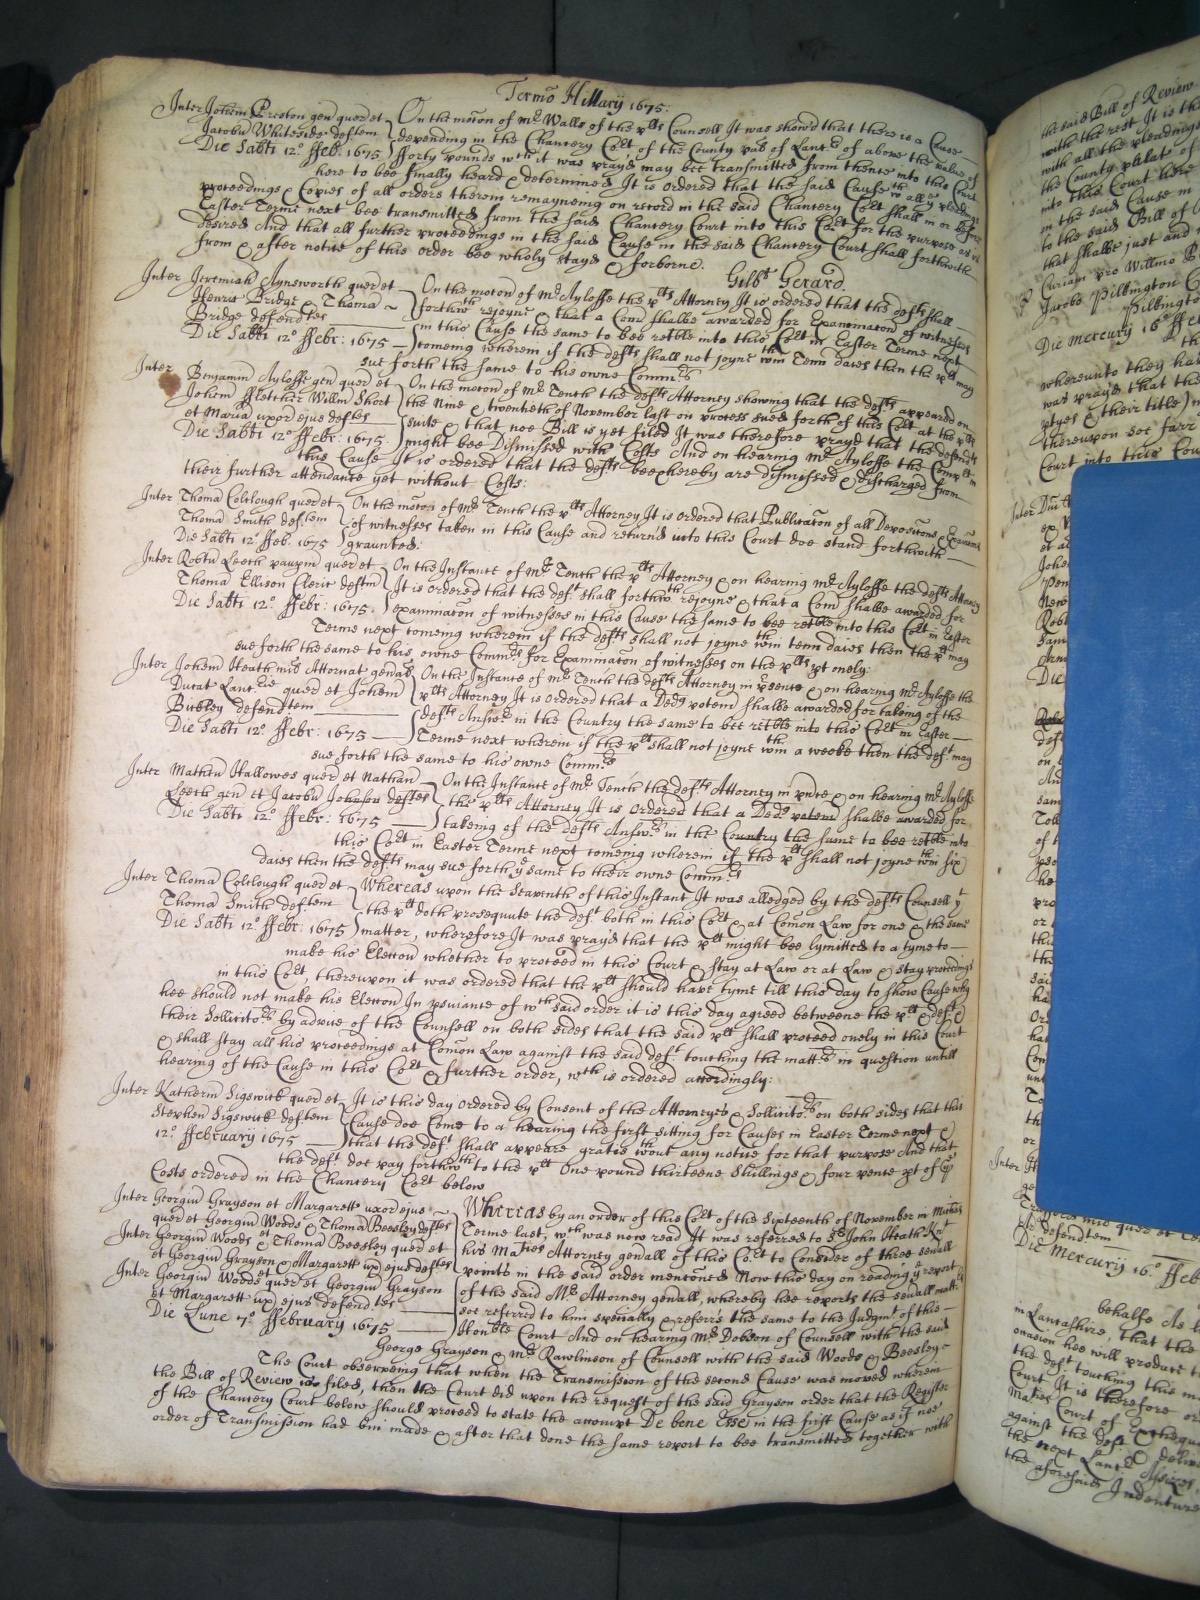 Termo Hillarij 1675:
Inter Johem Preston gen quer et
Jacobu Whiteside deftem
Die Sabti 12º ffeb. 1675
On the mocon of Mr Walls of the plts Councell It was showd that there is a Cause
depending in the Chancery Cort of the County pal of Lancr of above the value of
fforty pounds wch it was prayd may bee transmitted from thence into this Court
here to bee finally heard & determined It is ordered that the said Cause wth all ye pleadings
proceedings & Copies of all orders therein remayneing on record in the said Chancery Cort shall in or before
Easter Terme next bee transmitted from the said Chancery Court into this Cort for the purpose as is
desired And that all further proceedings in the said Cause in the said Chancery Court shall forthwith
from & after notice of this order bee wholy stayd & forborne.
Gilbt Gerard.
Inter Jeremiah Aynsworth quer et
Henru Bridge & Thoma
Bridge defendtes
Die Sabti 12º ffebr: 1675
On the mocon of Mr Ayloffe the plts Attorney It is ordered that the defts shall
forthwth rejoyne & that a Com shalbe awarded for Examinacon of witnesses
in this Cause the same to bee retble into this Cort in Easter Terme next
comeing wherein if the defts shall not joyne wthin Tenn daies then the plt may
sue forth the same to his owne Commrs
Inter Benjamin Ayloffe gen quer et
Johem ffletcher Willm Short
et Maria uxor ejus deftes
Die Sabti 12º ffebr: 1675
On the mocon of Mr Tench the defts Attorney showing that the defts appeared on
the Nine & twentieth of November last on process sued forth of this Cort at the plts
suite & that noe Bill is yet filed It was therefore prayd that the defendts
might bee Dismissed with Costs And on hearing Mr Ayloffe the Complt in
this Cause It is ordered that the defts bee & hereby are dismissed & discharged from
their further attendance yet without Costs:
Inter Thoma Colclough quer et
Thoma Smith deftem
Die Sabti 12º ffeb. 1675
On the mocon of Mr Tench the plts Attorney It is ordered that Publicacon of all Deposicons & Examinacons
of witnesses taken in this Cause and returnd into this Court doe stand forthwith
graunted:
Inter Robtu Leech pauperm quer et
Thoma Ellison Cleric deftem
Die Sabti 12º ffebr: 1675.
On the Instance of Mr Tench the plts Attorney & on hearing Mr Ayloffe the defts Attorney
It is ordered that the deft shall forthwth rejoyne & that a Com shalbe awarded for
examinacon of witnesses in this Cause the same to bee retble into this Cort in Easter
Terme next comeing wherein if the defts shall not joyne wthin tenn daies then the plt may
sue forth the same to his owne Commrs for Examinacon of witnesses on the plts pt onely:
Inter Johem Heath mil Attornat genal
Ducat Lancrie quer et Johem
Birkley defendtem
Die Sabti 12º ffebr: 1675
On the Instance of Mr Tench the defts Attorney in psence & on hearing Mr Ayloffe the
plts Attorney It is ordered that a Ded potem shalbe awarded for takeing of the
defts Answer in the Country the same to bee retble into this Cort in Easter
Terme next wherein if the plt shall not joyne wthin a weeke then the deft may
sue forth the same to his owne Commrs
Inter Mathew Hallowes quer et Nathan
Leech gen et Jacobu Johnson deftes
Die Sabti 12º ffebr: 1675
On the Instance of Mr Tench the defts Attorney in psnce & on hearing Mr Ayloffe
the plts Attorney It is ordered that a Ded potem shalbe awarded for
takeing of the defts Answrs in the Country the same to bee retble into
this Cort in Easter Terme next comeing wherein if the plt shall not joyne wthin six
daies then the defts may sue forth ye same to their owne Commrs
Inter Thoma Colclough quer et
Thoma Smith deftem
Die Sabti 12º ffebr: 1675
Whereas upon the Seaventh of this Instant It was alledged by the defts Councell yt
the plt doth prosequute the deft both in this Cort & at Comon Law for one & the same
matter, wherefore It was prayd that the plt might bee lymitted to a tyme to
make his Eleccon whether to proceed in this Court & stay at Law or at Law & stay proceedings
in this Cort, thereupon it was ordered that the plt should have tyme till this day to show Cause why
hee should not make his Eleccon In psuiance of wch said order it is this day agreed betweene the plt & deft &
their Sollicitors by advice of the Councell on both sides that the said plt shall proceed onely in this Court
& shall stay all his proceedings at Comon Law against the said deft touching the mattrs in question untill
hearing of the Cause in this Cort & further order, wch is ordered accordingly:
Inter Katherin Sigswick quer et
Stephen Sigswick deftem
12º ffebruary 1675
It is this day ordered by Consent of the Attorneyes & Sollicitors on both sides that this
Cause doe Come to a hearing the first sitting for Causes in Easter Terme next &
that the deft shall appeare gratis wthout any notice for that purpose And that
the deft doe pay forthwth to the plt One pound thirteene shillings & four pence pt of ye
Costs ordered in the Chancery Cort below
Inter Georgiu Grayson et Margarett uxor ejus
quer et Georgiu Woods & Thoma Beesley deftes
Inter Georgiu Woods et Thoma Beesley quer et
et Georgiu Grayson & Margarett ux ejus deftes
Inter Georgiu Woods quer et Georgiu Grayson
et Margarett ux ejus defendtes
Die Lune 7º ffebruary 1675
Whereas by an order of this Cort of the Sixteenth of November in Miches
Terme last, wch was now read It was referred to Sr John Heath Knt
his Maties Attorney genall of this Cort to Consider of three sevall
points in the said order menconed Now this day on reading ye report
of the said Mr Attorney genall, whereby hee reports the sevall mattrs
soe referred to him specially & referrs the same to the Judgmt of this
Honoble Court And on hearing Mr Dobson of Councell with the said
George Grayson & Mr Rawlinson of Councell with the said Woods & Beesley
The Court observeing that when the Transmission of the second Cause was moved wherein
the Bill of Review is filed, then the Court did upon the request of the said Grayson order that the Register
of the Chancery Court below should proceed to state the accompt De bene Esse in the first Cause as if noe
order of Transmission had bin made & after that done the same report to bee transmitted together with
the said Bill of Review
with the rest It is th
with all the pleadings
the County palate of
into this Court here
in the said Cause in
to the said Bill of
that shalbe just and
Curiam pro Willmo B
Jacobo Pilkington
Pilkingto
Die Mercurij 16º ffe
whereunto they ha
was prayd that the
ptyes & their title
thereupon soe farr
Court into this Cou
Inter
Inter
et defendtem
Die Mercurij 16º ffeb
behalfe As
in Lancashire, that the
occasion hee will produce
the deft touching this m
Court It is therefore or
Maties Court of Exchequ
against the deft & deliv
the next Lancr Assizes
the aforesaid Indenture